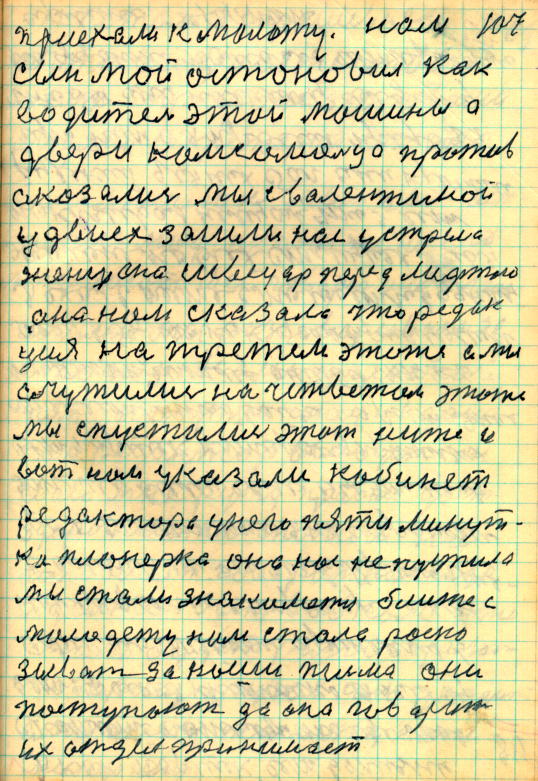 приехали к молоту. нам 107
сын мой остоновил как
водител этой машины а
двери комсомолуа против
оказалис мы свалентиной
у двиех зашли нас устрела
женщена швеуар перед лифтло
она ном сказала что редак
ция на третем этоже а мы
очутилис на читветом этоже
мы спустилис этот ниже и
вот ном указали кобинет
редактора унего пяти минут-
ка плонерка она нас не пустила
мы стали знакомится ближе с
молодежу ном стала роско
зыват за ноши писма они
поступают да она говарит
их отдел принимает